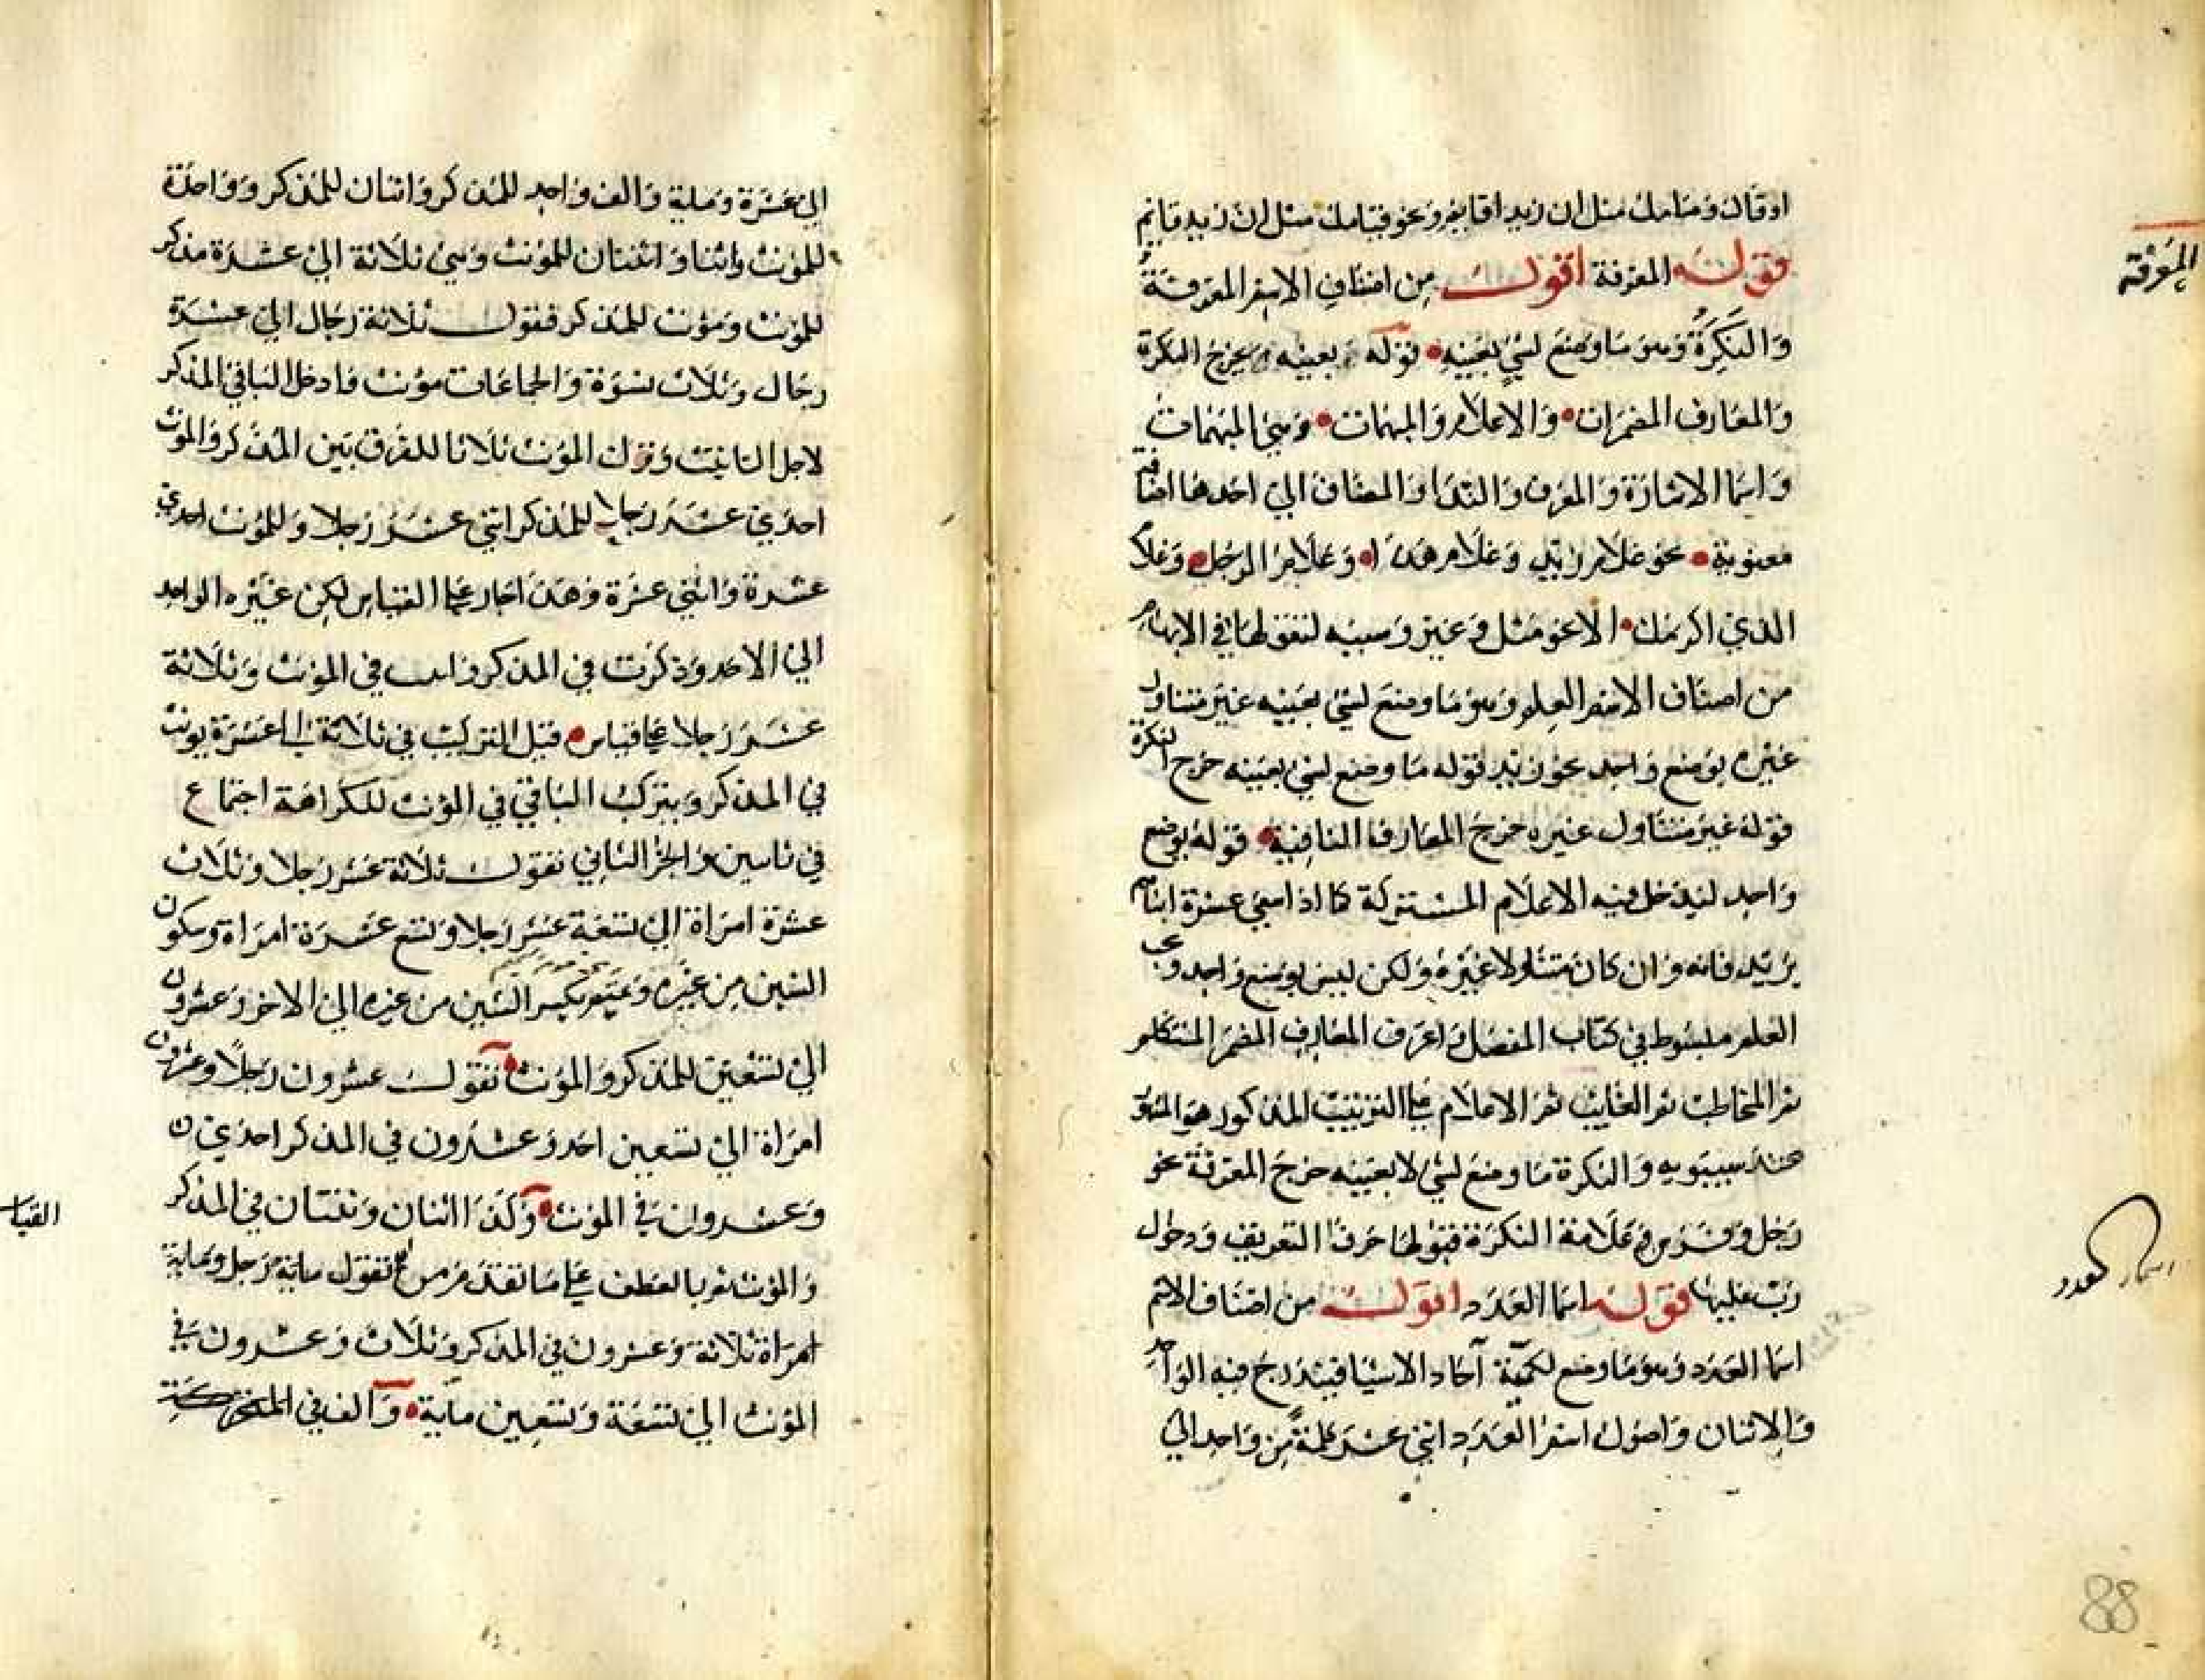 المعرفة
اوقاك ومنامك مثل ان زيد اقايم ونحو قيامك مثل ان زيد قايم
قوله المعرفة اقول من اصناف الاسم المعرفة
والنكرة وهو ما وضع لشي بعينه قوله بعينه يخرج النكرة
والمعارف المضمرات والاعلام والمبهمات وهي المبهمات
واسما الاشارة والمعرف والندا والمضاف الي احدها اضافة
معنوية نحو غلام زيد وغلام هذا وغلام الرجل وغلام
الذي اكرمك الا نحو مثل و غير وسبيه لتغولها في الابهام
من اصناف الاسم العلم وهو ما وضع لشي بعينه غير متناول
غيره بوضع واحد نحو زيد قوله ما وضع لشي بعينه خرج النكرة
قوله غير متناول غيره خرج المعارف الباقية قوله بوضع
واحد ليدخل فيه الاعلام المشتركة كما اذا سمي عشرة ابنا
يزيد فانه وان كان متناولا غيره ولكن ليس بوضع واحد و
العلم مبسوط في كتاب المفصل و اعرف المعارف المضمر المتكلم
ثم المخاطب ثم الغايب ثم الاعلام علي الترتيب المذكور هو
عند سيبويه والنكرة ما وضع لشي لا بعينه خرج المعرفة نحو
رجل وفرس وعلامة النكرة قبولها حرف التعريف ودخول
رب عليها قوله اسما العدد اقول من اصناف الاسم
اسما العدد وهو ما وضع لكمية آحاد الاشيا فيندرج فيه الواحد
والاثنان واصول اسم العدد اثني عشر كلمة من واحد الي
اسماء العدد
88
الي عشرة وماية والف واحد للمذكر واثنان للمذكر وواحدة
للمؤنث واثنا واثنتان للمؤنث وهي ثلاثة الي عشرة مذكر
للمؤنث ومؤنث للمذكر فتقول ثلاثة رجال الي عشرة
رجال وثلاث نسوة والجماعات مؤنث فادخل التا في المذكر
لاجل التانيث وترك المؤنث ثلاثا للفرق بين المذكر والمؤنث
احدي عشر رجلا للمذكر اثني عشر رجلا وللمؤنث احدي
عشرة واثني عشرة وهذا جار علي القياس لكن غيره الواحد
الي الاحد وذكرت في المذكر وانت في المؤنث وثلاثة
عشر رجلا علي قياس قبل التركيب في ثلاثة الي عشرة يونث
في المذكر ويترك الباقي في المؤنث للكراهة اجتماع
في تاسين والجز الثاني تقول ثلاثة عشر رجلا وثلاث
عشرة امراة الي تسعة عشر رجلا وتسع عشرة امراة وسكون
الشين من غيره وتميم بكسر الشين من غيره الي الاخر وعشرون
الي تسعين للمذكر والمؤنث تقول عشرون رجلا وعشرون
امراة الي تسعين احد وعشرون في المذكر احدي
وعشرون في المؤنث وكذا اثنان وثنتان في المذكر
والمؤنث ثم بالعطف علي ما تقدم من تقول ماية رجل وماية
امراة ثلاثة وعشرون في المذكر وثلاث وعشرون في
المؤنث الي تسعة وتسعين ماية والف في
القياس